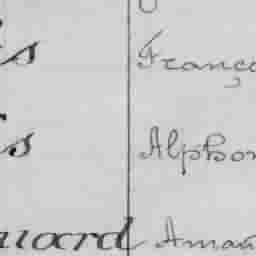 is Franç
is Alphon
uard Aman